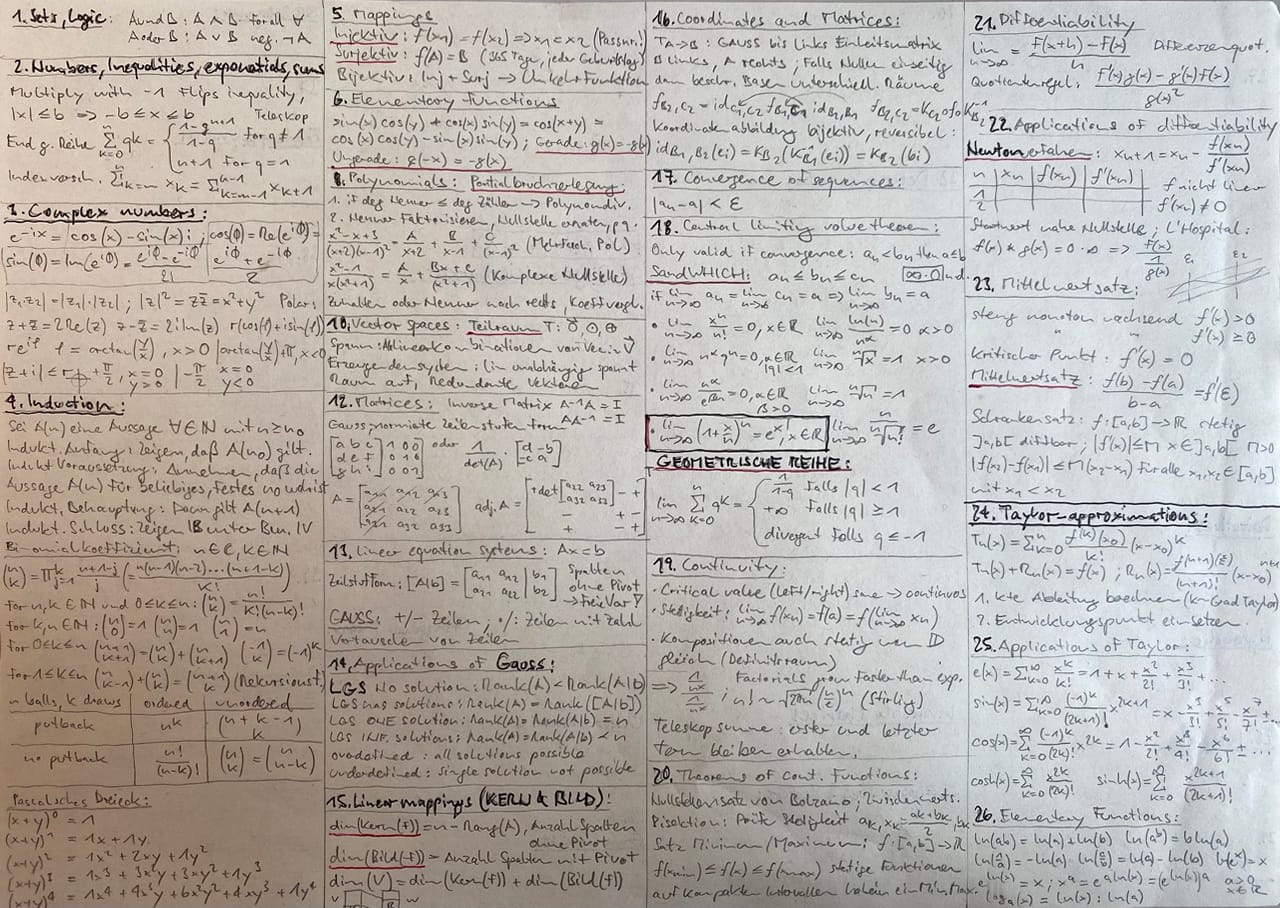 1. Sets, Logic: A und B: A ∧ B for all ∀
A oder B: A ∨ B neg. ¬A
2. Numbers, Inequalities, exponentials, sums
Multiply with -1 flips inequality,
|x| ≤ b => -b ≤ x ≤ b Teleskop
End g. Reihe
n+1 for q = 1
Indexversch.
3. Complex numbers:
e^-ix = cos(x) - sin(x)i ; cos(ϕ) = Re(e^iϕ) =
sin(ϕ) = Im(e^iϕ) =
|z1·z2| = |z1|·|z2| ; |z|² = z z̄ = x² + y² Polar:
z + z̄ = 2Re(z) z - z̄ = 2i Im(z)
4. Induktion:
Sei A(n) eine Aussage ∀∈ℕ mit n ≥ n0
Indukt. Anfang: zeigen, daß A(n0) gilt.
Indukt Voraussetzung: Annehmen, daß die
Aussage A(n) für beliebiges, festes n0 wahr ist
Indukt. Behauptung: Dann gilt A(n+1)
Indukt. Schloss: zeigen IB unter Ben. IV
Binomialkoeffizient: n∈ℝ, k∈ℕ
for n,k ∈ ℕ und 0≤k≤n: (n k) = n!/k!(n-k)!
for 0≤k≤n (n+1 k+1) = (n k) + (n k+1) (-1 k) = (-1)^k
for 1≤k≤n (n k-1) + (n k) = (n+1 k) (Rekursionsf.)
n balls, k draws ordered unordered
putback n^k (n+k-1 k)
no putback n!/(n-k)! (n k) = (n n-k)
Pascalsches Dreieck:
(x+y)^0 = 1
(x+y)^1 = 1x + 1y
(x+y)^2 = 1x² + 2xy + 1y²
(x+y)^3 = 1x³ + 3x²y + 3xy² + 1y³
(x+y)^4 = 1x⁴ + 4x³y + 6x²y² + 4xy³ + 1y⁴
5. Mappings
Injektiv: f(x1) = f(x2) => x1 = x2 (Passnr.!)
Surjektiv: f(A) = B (365 Tage, jeder Geburtstag)
Bijektiv: Inj + Surj → Umkehrfunktion
6. Elementary functions
sin(x)cos(y) + cos(x)sin(y) = cos(x+y) =
cos(x)cos(y) - sin(x)sin(y) ; Gerade: g(x) = -g(x)
Ungerade: g(-x) = -g(x)
8. Polynomials: Partialbruchzerlegung:
1. if deg Nenner ≤ deg Zähler → Polynomdiv.
2. Nenner Faktorisieren, Nullstelle erraten, pq.
x²-x+3/(x+2)(x-1)² = A/x+2 + B/x-1 + C/(x-1)² (Mehrfach. Pol.)
x²-1/x(x²+1) = A/x + Bx+C/(x²+1) (Komplexe Nullstelle)
Zuhalten oder Nenner nach rechts, Koeffvergl.
10. Vector spaces: Teilraum T: 0⃗, ⊙, ⊕
Spann: All Linearkombinationen von Vec. in V⃗
Erzeugendensystem: lin unabhängig spannt
Raum auf, Redundante Vektoren
12. Matrices: Inverse Matrix A^-1 A = I
Gauss, normale Zeilenstufenform A A^-1 = I
[a b c d e f g h i] [1 0 0 0 1 0 0 0 1] oder 1/det(A) · [d -b -c a]
13. Linear equation systems: Ax = b
Zeilstufform: [A|b] = [a11 a12 | b1 a21 a22 | b2] Spalten
ohne Pivot
→ freie Var!
GAUSS: +/- Zeilen, ·/: Zeilen mit Zahl
Vertauschen von Zeilen
14. Applications of Gauss:
LGS NO solution: Rank(A) < Rank(A|b)
LGS has solutions: Rank(A) = Rank([A|b])
LGS ONE solution: Rank(A) = Rank(A|b) = n
LGS INF. solutions: Rank(A) = Rank(A|b) < n
overdefined: all solutions possible
underdefined: single solution not possible
15. Linear mappings (KERN & BILD):
dim(Kern(f)) = n - Rang(A), Anzahl Spalten
ohne Pivot
dim(Bild(f)) = Anzahl Spalten mit Pivot
dim(V) = dim(Kern(f)) + dim(Bild(f))
16. Coordinates and Matrices:
T A→B: GAUSS bis links Einheitsmatrix
B links, A rechts; Falls Nullen einseitig
dann beschr. Basen unterschiedl. Räume
Koordinatenabbildung bijektiv, reversibel:
17. Convergence of sequences:
|an - a| < ε
18. Central limiting value theorem:
Only valid if convergence: an < bn then a ≤ b
SandWHICH: an ≤ bn ≤ cn
if lim n→∞ an = lim n→∞ cn = a => lim n→∞ bn = a
• lim n→∞ x^n/n! = 0, x∈ℝ lim n→∞ ln(n)/n^α = 0 α>0
• lim n→∞ n^α q^n = 0, α∈ℝ |q|<1 lim n→∞ ⁿ√x = 1 x>0
• lim n→∞ n^α/e^βn = 0, α∈ℝ β>0 lim n→∞ ⁿ√n = 1
• lim n→∞ (1+x/n)^n = e^x, x∈ℝ lim n→∞ n/ⁿ√n! = e
GEOMETRISCHE REIHE:
1/1-q falls |q| < 1
lim n→∞ Σ k=0 n q^k = +∞ falls |q| ≥ 1
divergent falls q ≤ -1
19. Continuity:
• Critical value (left/right) same → continuos
• Stetigkeit: lim n→∞ f(xn) = f(a) = f(lim n→∞ xn)
• Kompositionen auch stetig wenn ID
gleich (Definitsraum)
Factorials grow faster than exp.
; n! ~ √2πn (n/e)^n (Stirling)
Teleskopsumme: erster und letzter
Term bleiben erhalten.
20. Theorems of cont. Functions:
Nullstellensatz von Bolzano; Zwischenwerts.
Bisektion: Prüfe Stetigkeit
Satz Minimum/Maximum: f:[a,b]→ℝ
f(xmin) ≤ f(x) ≤ f(xmax) stetige Funktionen
auf kompakten Intervallen haben ein Min, Max.
21. Differentiability
lim n→∞ = f(x+h) - f(x)/h Differenzenquot.
Quotientenregel: f'(x)g(x) - g'(x)f(x)/g(x)²
22. Applications of differentiability
Newtonverfahren: xn+1 = xn - f(xn)/f'(xn)
n xn f(xn) f'(xn) f nicht linear
1
2 f'(xn) ≠ 0
Startwert nahe Nullstelle; L'Hospital:
f(x) * g(x) = 0·∞ => f(x)/1/g(x)
23. Mittelwertsatz:
streng monoton wachsend f'(x) > 0
" " f'(x) ≥ 0
Kritischer Punkt: f'(x) = 0
Mittelwertsatz: f(b) - f(a)/b-a = f'(ξ)
Schrankensatz: f:[a,b]→ℝ stetig
]a,b[ diffbar; |f'(x)| ≤ M x∈]a,b[ M>0
|f(x2)-f(x1)| ≤ M(x2-x1) für alle x1,x2∈[a,b]
mit x1 < x2
24. Taylor-approximations:
Tn(x) = Σ k=0 n f^(k)(x0)/k! (x-x0)^k
Tn(x) + Rn(x) = f(x) ; Rn(x) = f^(n+1)(ξ)/(n+1)! (x-x0)^n+1
1. k-te Ableitung berechnen (k-Grad Taylor)
2. Entwicklungspunkt einsetzen.
25. Applications of Taylor:
e(x) = Σ k=0 ∞ x^k/k! = 1 + x + x²/2! + x³/3! + ...
sin(x) = Σ k=0 ∞ (-1)^k/(2k+1)! x^2k+1 = x - x³/3! + x⁵/5! - x⁷/7! ± ...
cos(x) = Σ k=0 ∞ (-1)^k/(2k)! x^2k = 1 - x²/2! + x⁴/4! - x⁶/6! ± ...
cosh(x) = Σ k=0 ∞ x^2k/(2k)! sinh(x) = Σ k=0 ∞ x^2k+1/(2k+1)!
26. Elementary Functions:
ln(ab) = ln(a) + ln(b) ln(a^b) = b ln(a)
ln(a/b) = ln(a) - ln(b) ln(e^x) = x
e^ln(x) = x ; x^a = e^a ln(x) = (e^ln(x))^a a>0 x∈ℝ
log a(x) = ln(x) : ln(a)